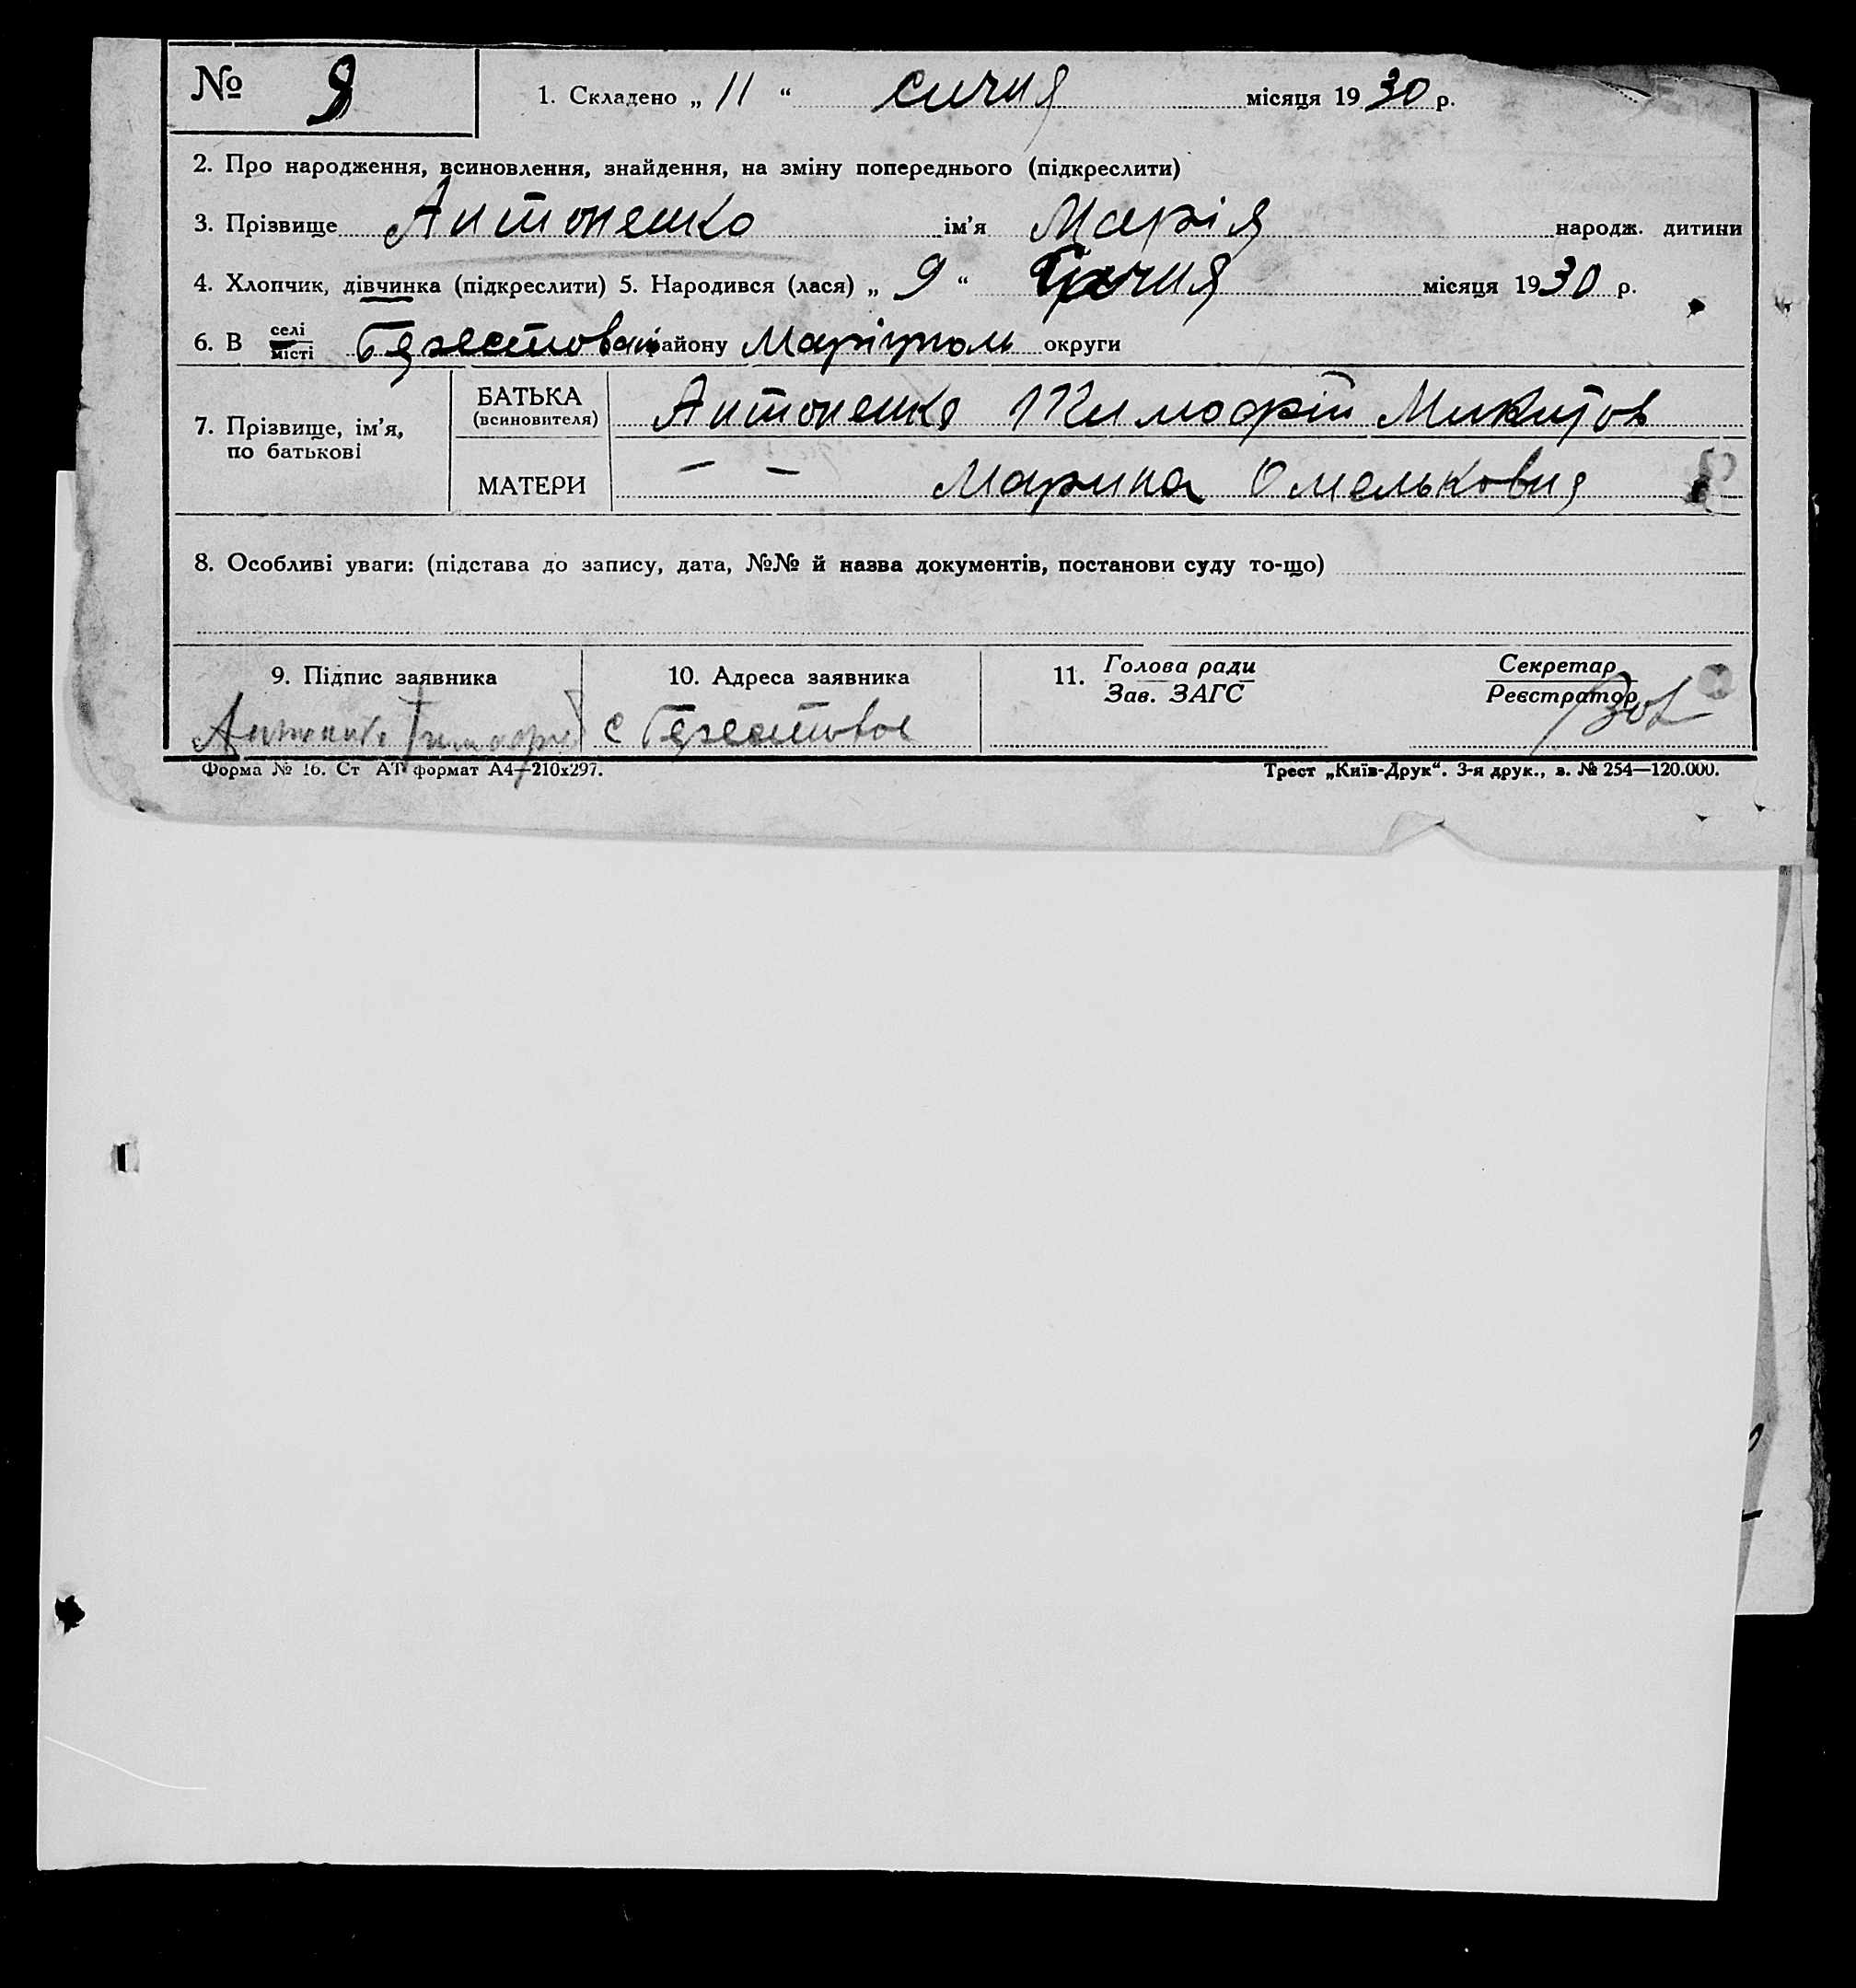 № 9 1. Складено „ 11 “ сичня місяця 1930 р.
2. Про народження, всиновлення, знайдення, на зміну попереднього (підкреслити)
3. Прізвище Антоненко ім’я Марія народж. дитини
4. Хлопчик, дівчинка (підкреслити) 5. Народився (лася) „ 9 “ сичня місяця 1930 р.
6. В селі місті району Маріуполь округи
7. Прізвище, ім’я, по батькові
БАТЬКА (всиновителя) Антоненко Тимофій Микитов
МАТЕРИ – – Марина Омельковна
8. Особливі уваги: (підстава до запису, дата, №№ й назва документів, постанови суду то-що)
9. Підпис заявника 10. Адреса заявника 11. Голова ради Зав. ЗАГС Секретар Реєстратор
Антоненко с Берестовое
Форма № 16. Ст АТ формат А4—210х297. Трест „Київ-Друк“. 3-я друк., з. № 254—120.000.